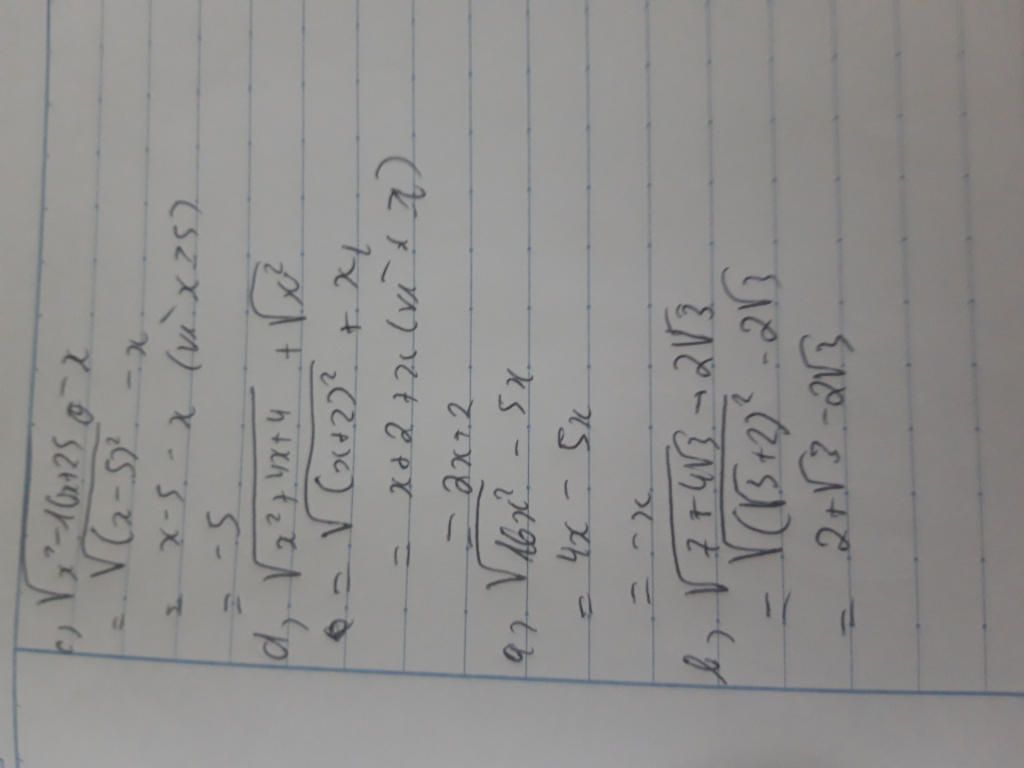 c, √x²-10x+25 - x
= √(x-5)² - x
= x-5 - x (vì x≥5)
= -5
d, √x²+4x+4 + √x²
= √(x+2)² + x
= x+2 + x (vì x
= 2x+2
a, √16x² - 5x
= 4x - 5x
= -x
b, √7+4√3 - 2√3
= √(√3+2)² - 2√3
= 2+√3 - 2√3